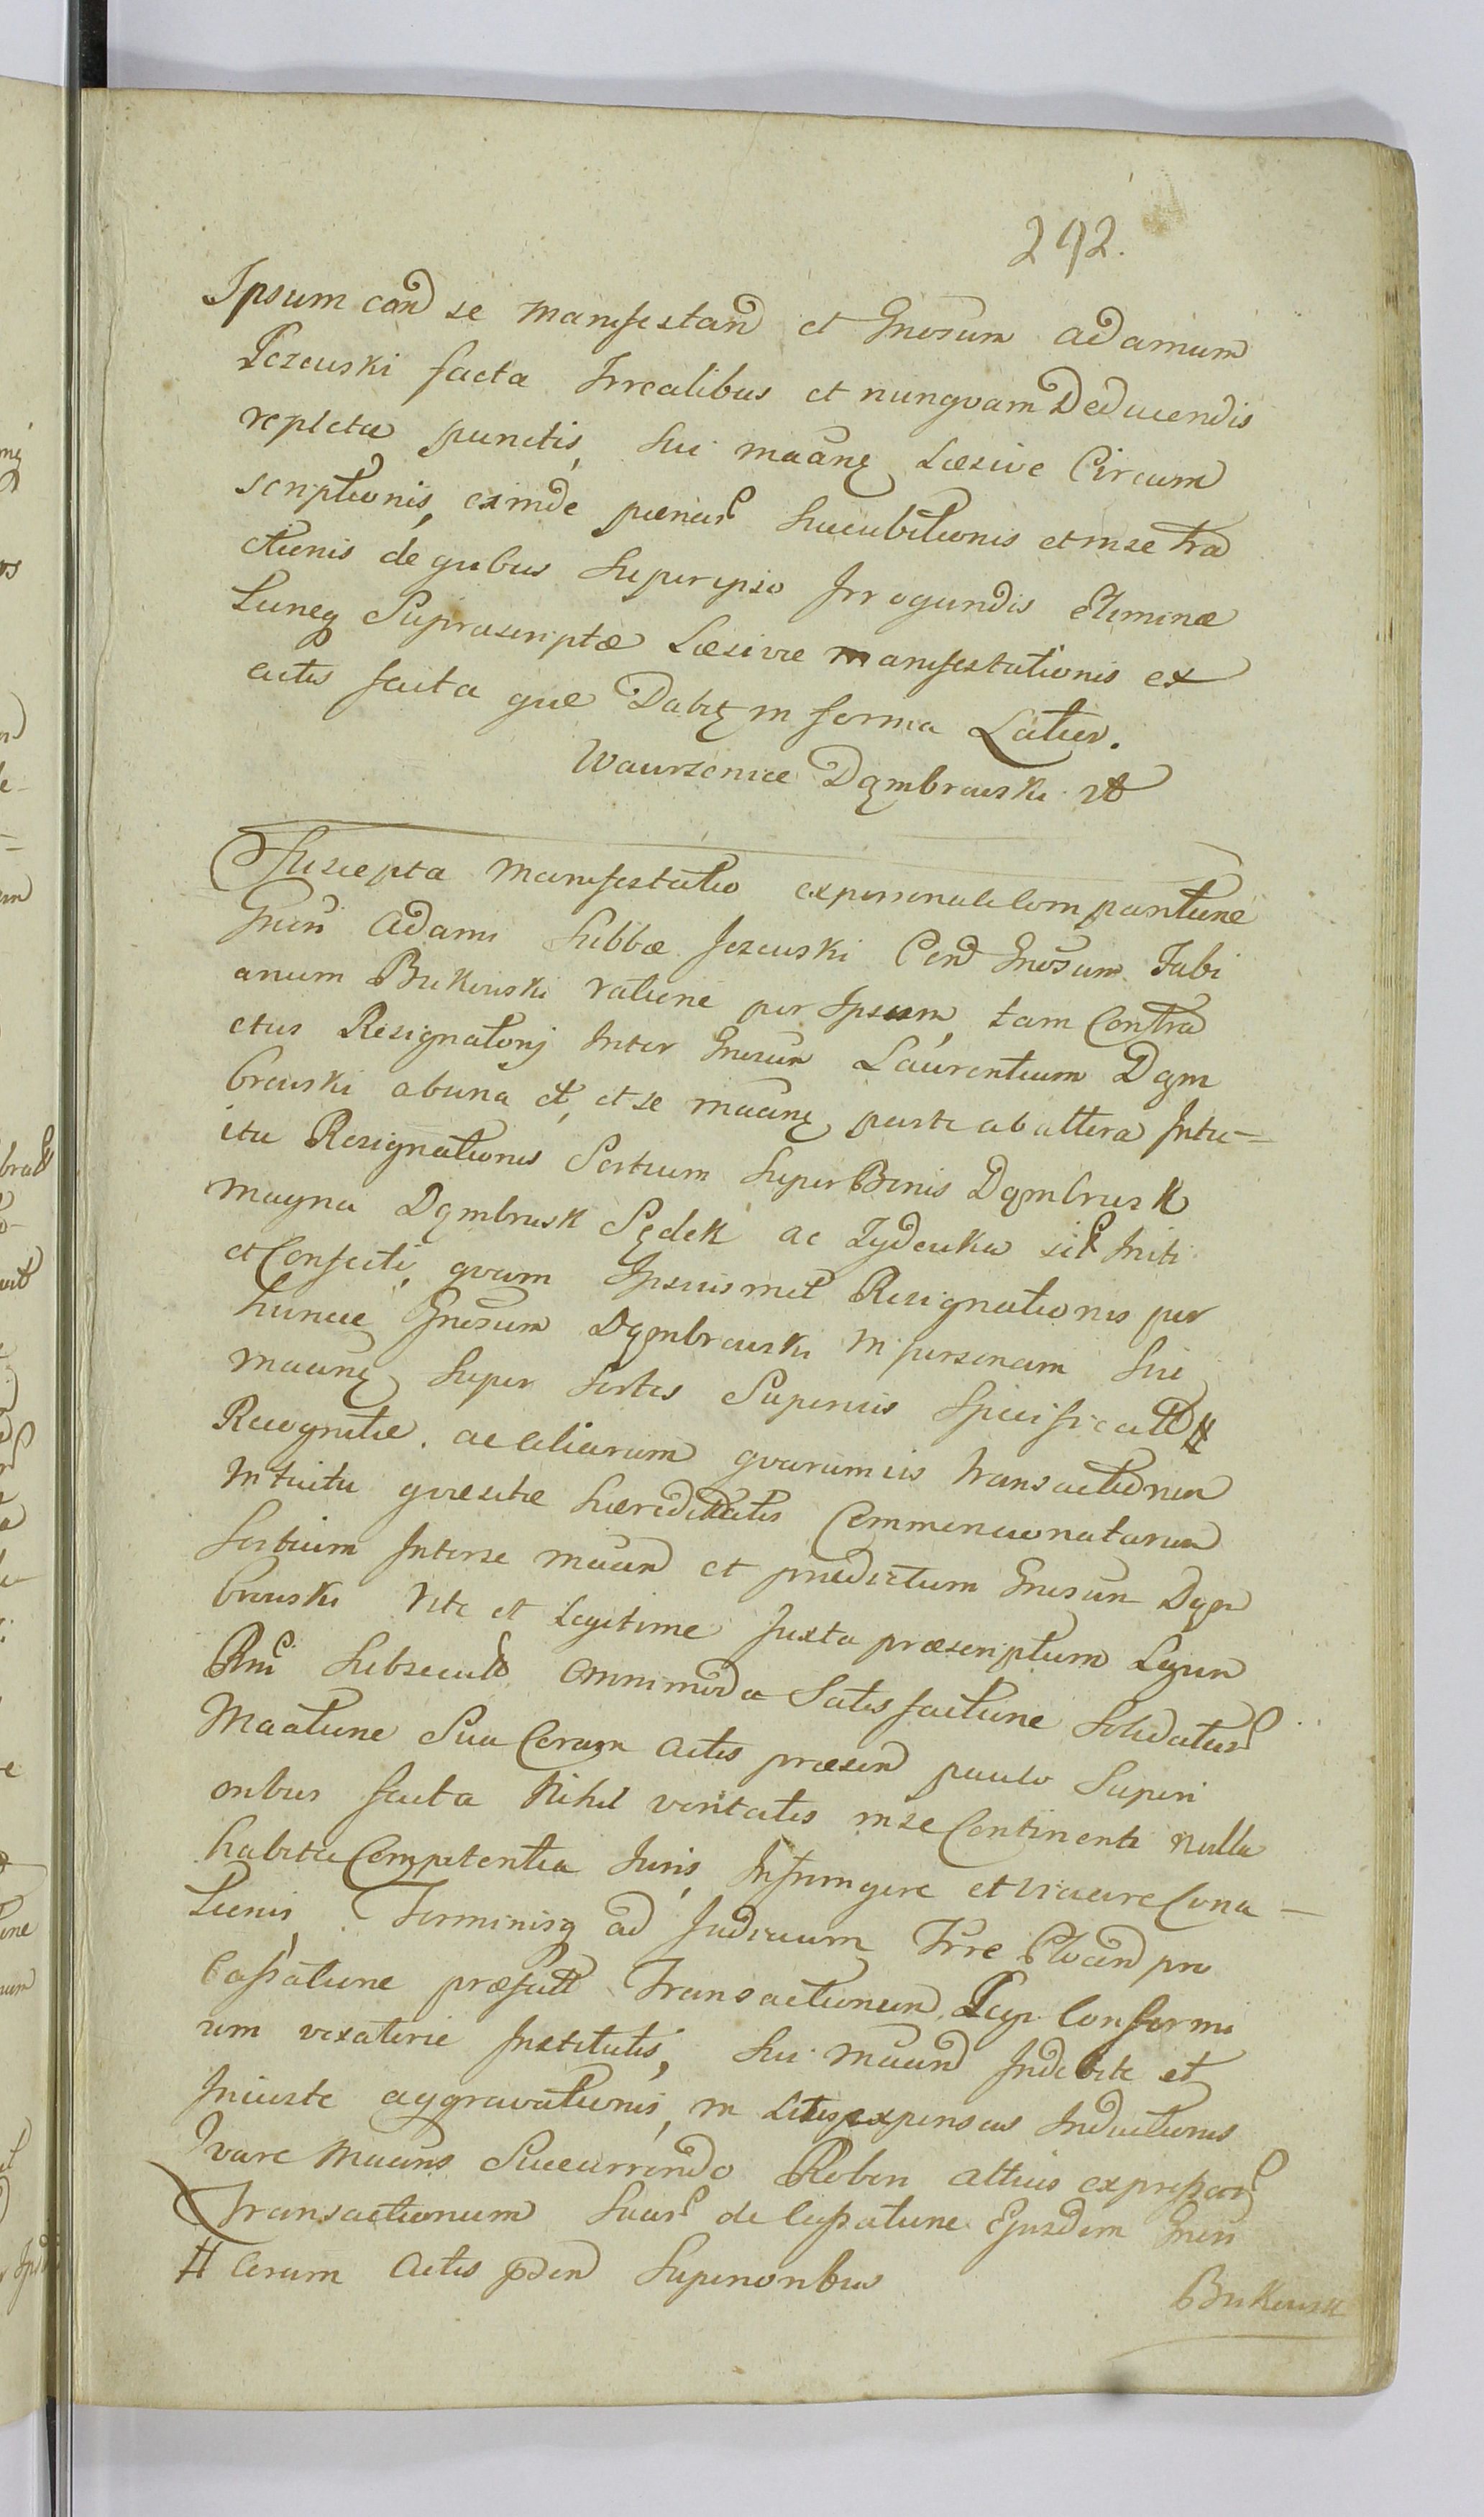 292.
Ipsum cond se manifestand et Gnosum Adamum
Jezewski facta Irrealibus et nunqvam Deducendis
repletæ punctis, sui maãnę Læsive Circum
scriptionis, exinde pænar Succubitionis et in se tra
ctionis de quibus super ipso Irrogandis Elimina
tioneq Suprascriptæ Læsivæ manifestationis ex
actis facta quæ Dabitę in forma Latior.
Wawrzeniec Dąmbrowski
Suscepta Manifestatio ex personali Comparitione
Gnsi Adami Subbæ Jezewski Cond Gnosum Fabi
anum Bukowski ratione per Ipsum, tam Contra
ctus Resignatorij Inter Gnosum Laurentium Dąm
browski ab una et, et se maãnę parte ab altera Intu-
itu Resignationis Sortium super Bonis Dąmbrusk
magna Dąmbrusk Sędek ac Zydowka Initi
et Confecti, qvam Ipsiusmet Resignationis per
hunce Gnosum Dąmbrowski in personam sui
maãnę super Sortes Superius Specificatt #
Recognitæ. ac aliarum qvarumvis transactionum
Intuitu qvæsitæ hæreditatis Commencionatarum
Sortium Inter se maãnd et prædictum Gnosum Dąm
browski rite et Legitime Juxta præscriptum Legum
Rni Subsecutt omnimoda Satisfactione Solidatar
Maãtione Sua Coram Actis præsend paulo Superi
oribus facta Nihil veritatis in se Continenti nulla
habita Competentia Juris, Infringere et viciare Cona-
tionis, Terminisq ad Judicium Trre pro
Cassatione præfatt Transactionum, Legi Conformi
um vexatorie Institutis, sui maãnd Indebite et
Iniuste aggravationis, in Litis expensas Inductionis
Qvare Maãns Succurrendo Robori altius expressar
Transactionum suar de Cassatione Ejusdem Gnosi
# Coram Actis pden Superioribus
Bukowsk